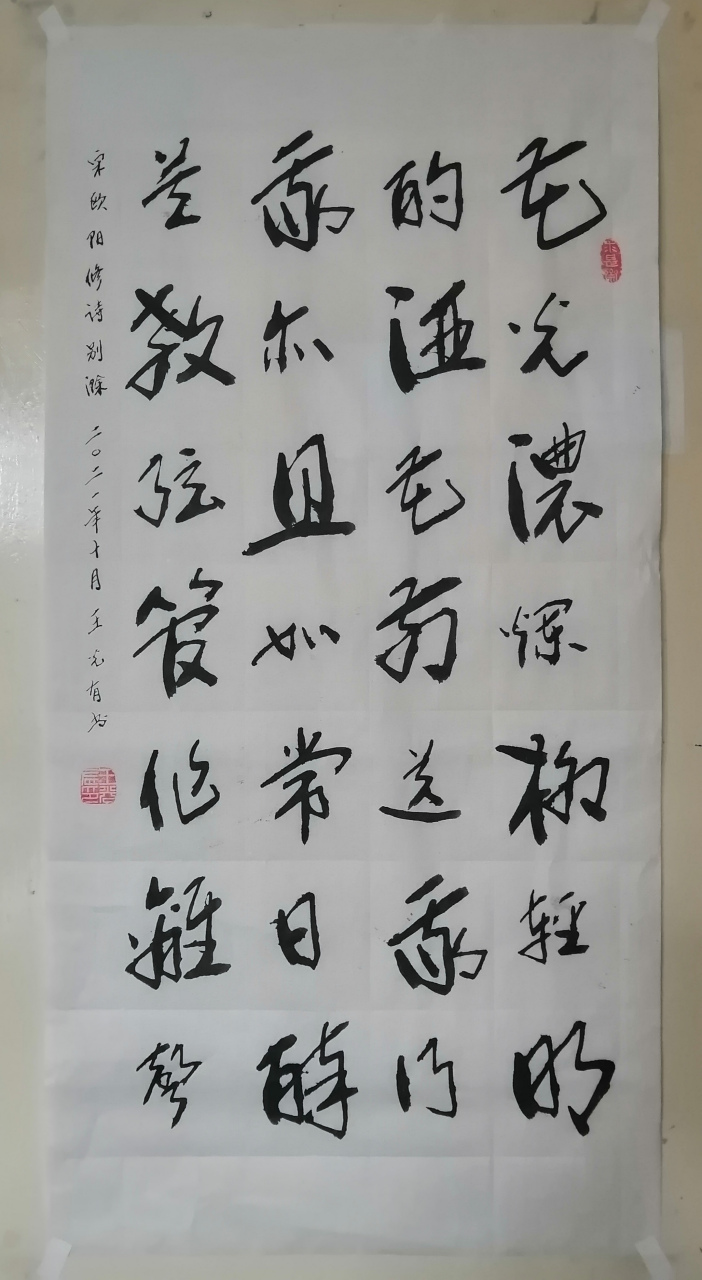 花光濃爛柳輕明
酌酒花前送我行
我亦且如常日醉
莫教弦管作離聲
宋欧阳修诗别滁 二〇二一年十月 王光有书